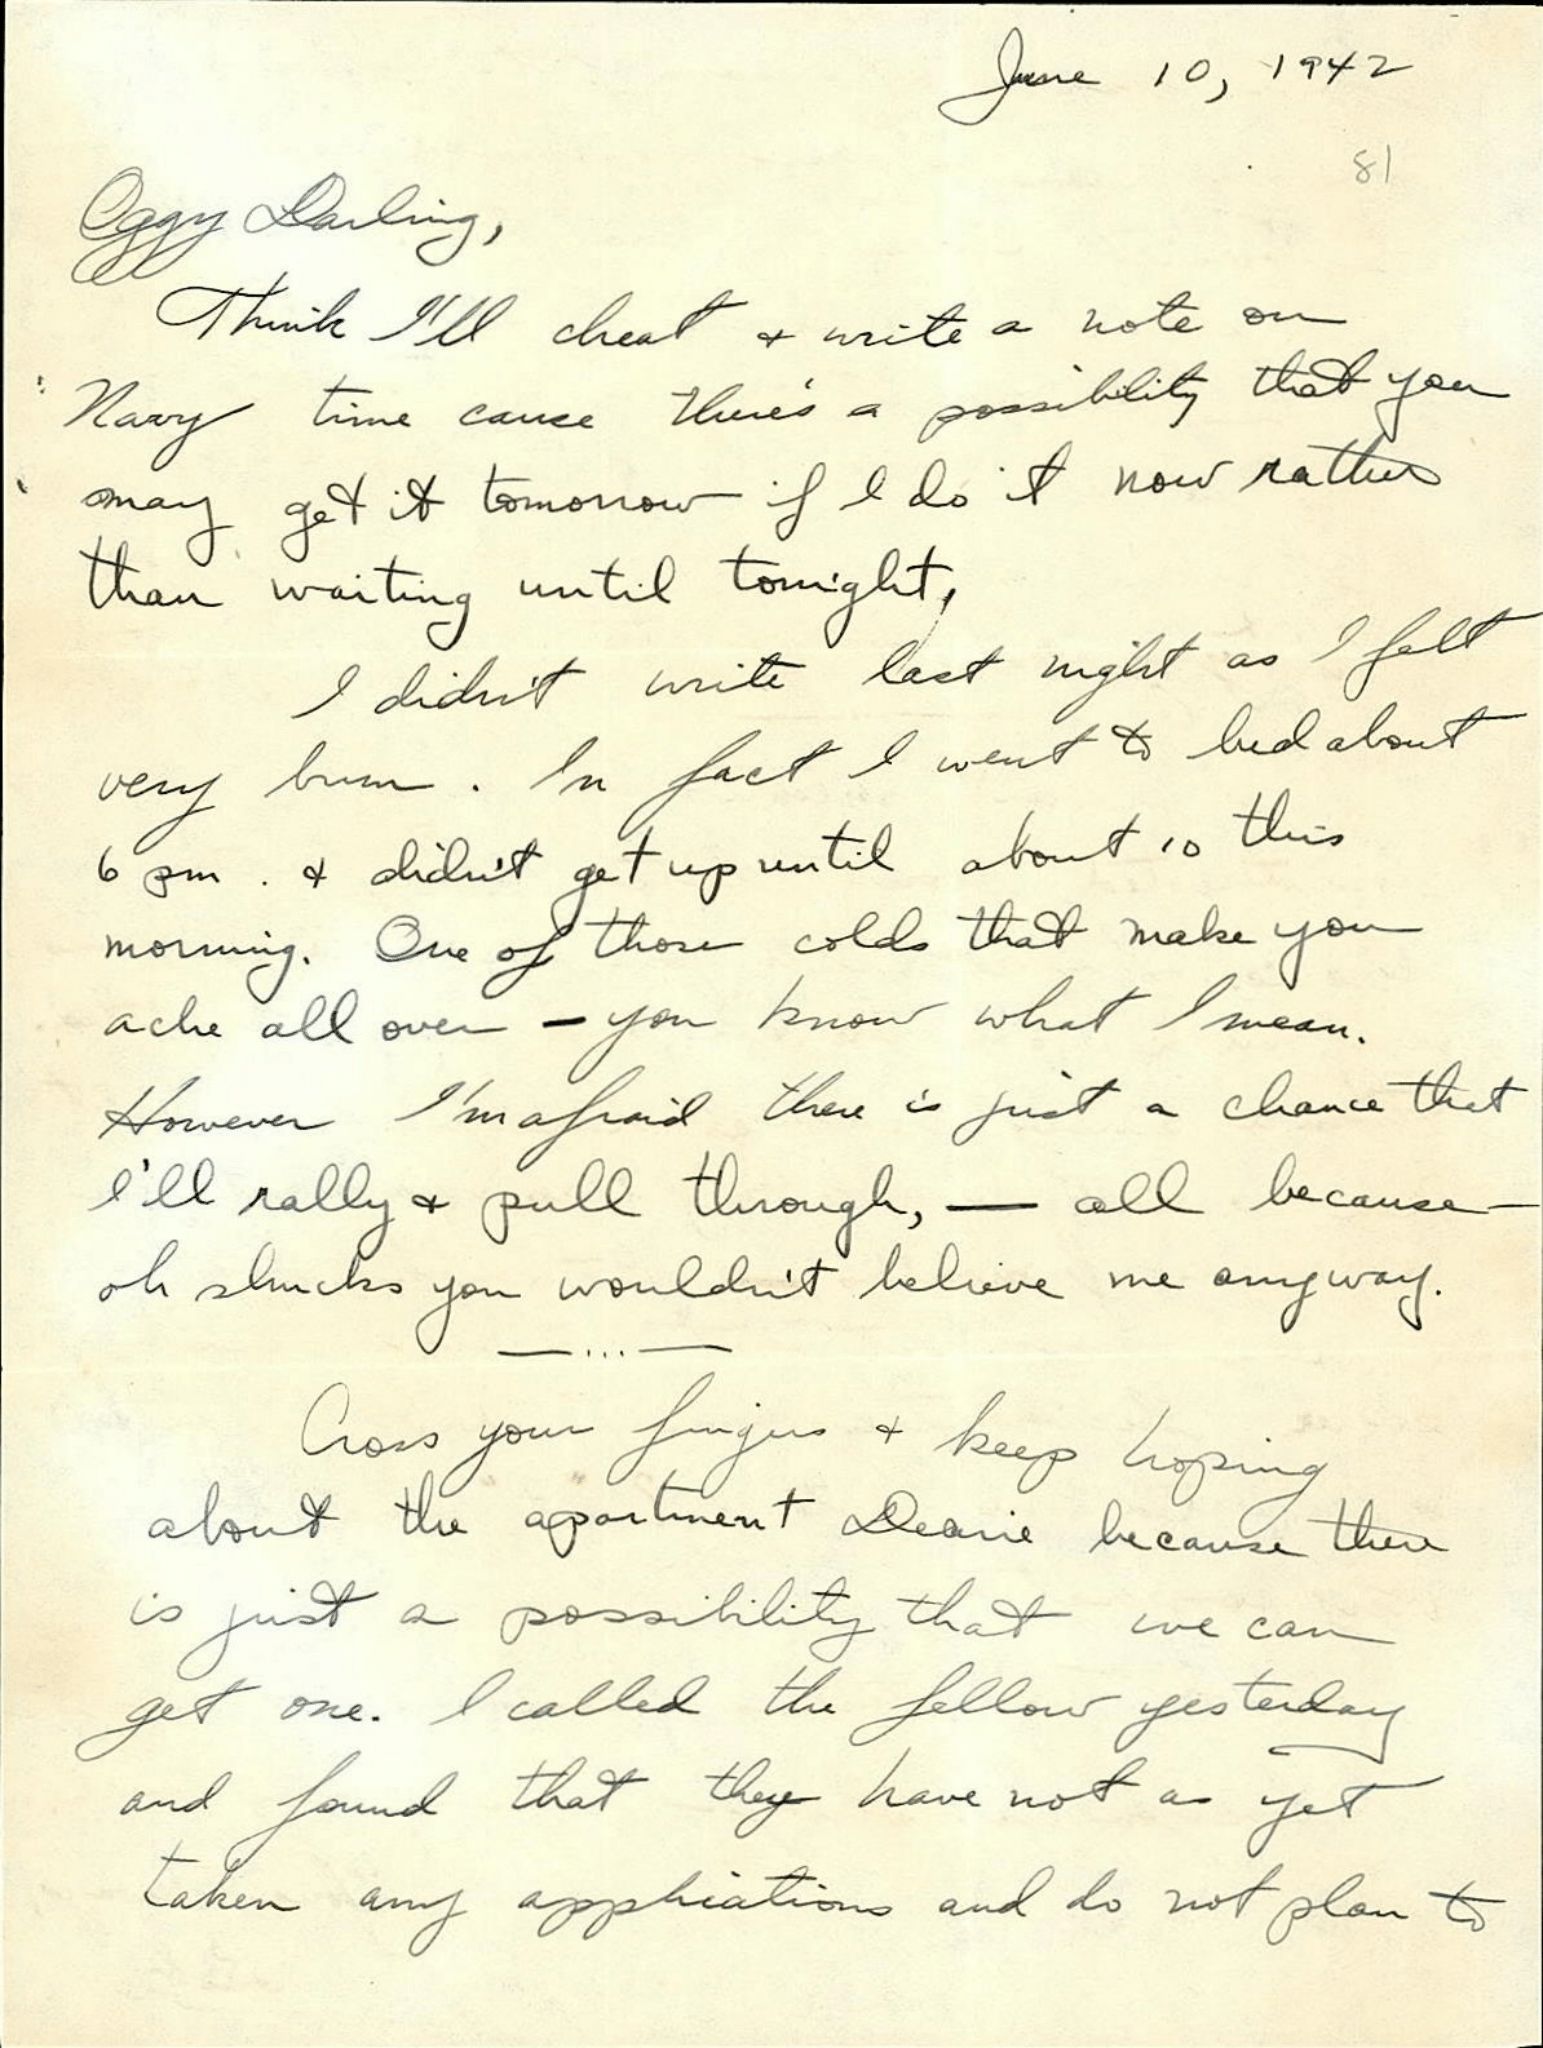 June 10, 1942
81
Oggy Darling,
Think I'll cheat & write a note on
Navy time cause there's a possibility that you
may get it tomorrow if I do it now rather
than waiting until tonight.
I didn't write last night as I felt
very bum. In fact I went to bed about
6 pm. & didn't get up until about 10 this
morning. One of those colds that make you
ache all over - you know what I mean.
However I'm afraid there is just a chance that
I'll rally & pull through, — all because —
oh shucks you wouldn't believe me anyway.
— ... —
Cross your fingers & keep hoping
about the apartment Dearie because there
is just a possibility that we can
get one. I called the fellow yesterday
and found that they have not as yet
taken any appliations and do not plan to